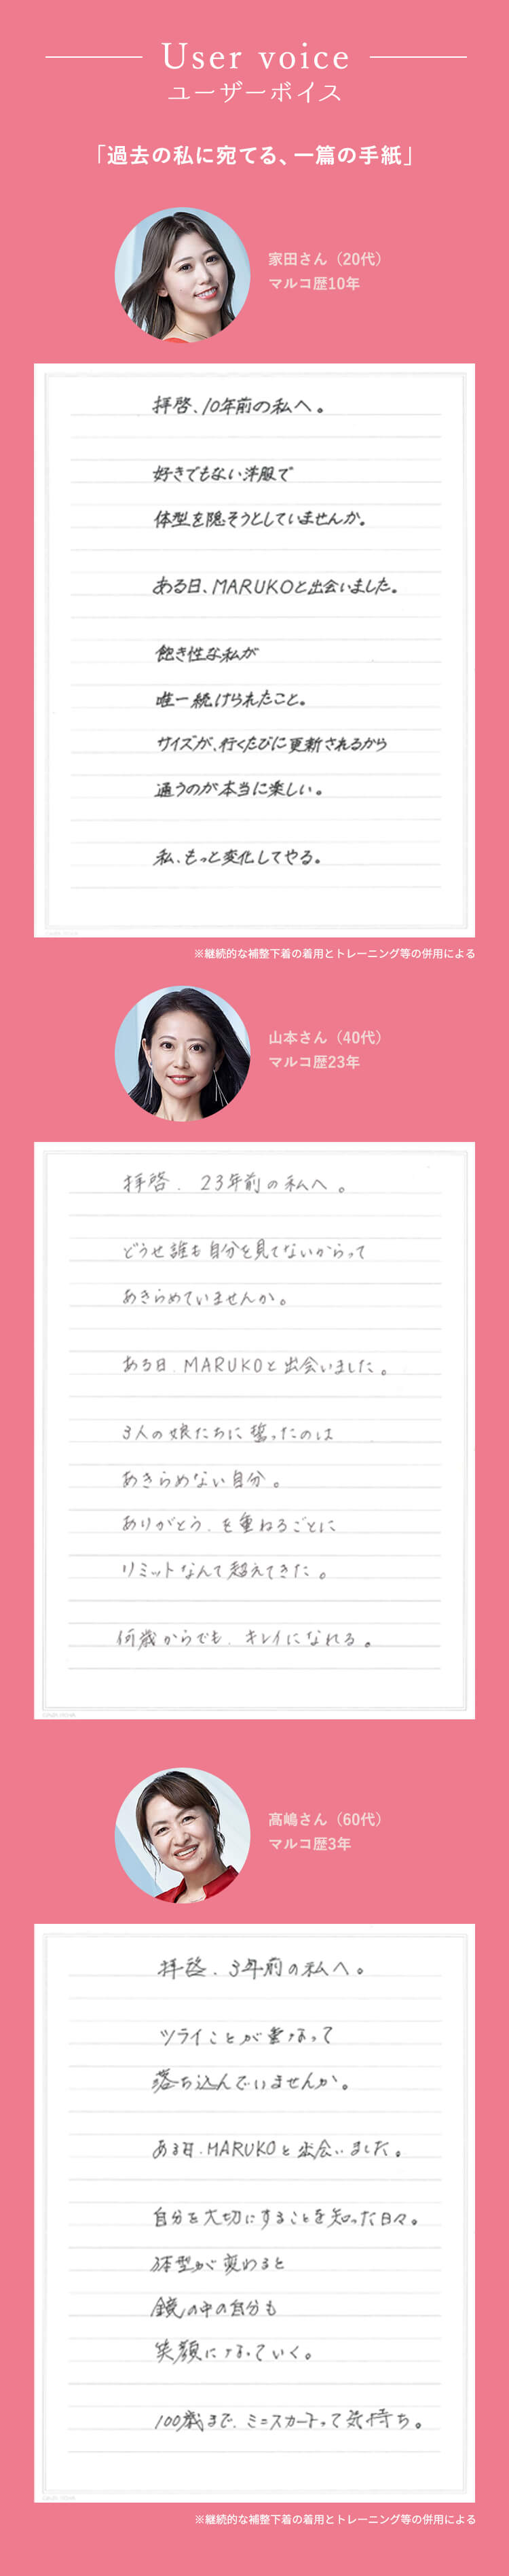 User voice
ユーザーボイス
「過去の私に宛てる、一篇の手紙」
家田さん（20代）
マルコ歴10年
拝啓、10年前の私へ。
好きでもない洋服で
体型を隠そうとしていませんか。
ある日、MARUKOと出会いました。
飽き性な私が
唯一続けられたこと。
サイズが、行くたびに更新されるから
通うのが本当に楽しい。
私、もっと変化してやる。
※継続的な補整下着の着用とトレーニング等の併用による
山本さん（40代）
マルコ歴23年
拝啓、23年前の私へ。
どうせ誰も自分を見てないからって
あきらめていませんか。
ある日、MARUKOと出会いました。
3人の娘たちに誓ったのは
あきらめない自分。
ありがとう、を重ねるごとに
リミットなんて超えてきた。
何歳からでも、キレイになれる。
髙嶋さん（60代）
マルコ歴3年
拝啓、3年前の私へ。
ツライことが重なって
落ち込んでいませんか。
ある日、MARUKOと出会いました。
自分を大切にすることを知った日々。
体型が変わると
鏡の中の自分も
笑顔になっていく。
100歳まで、ミニスカートって気持ち。
※継続的な補整下着の着用とトレーニング等の併用による